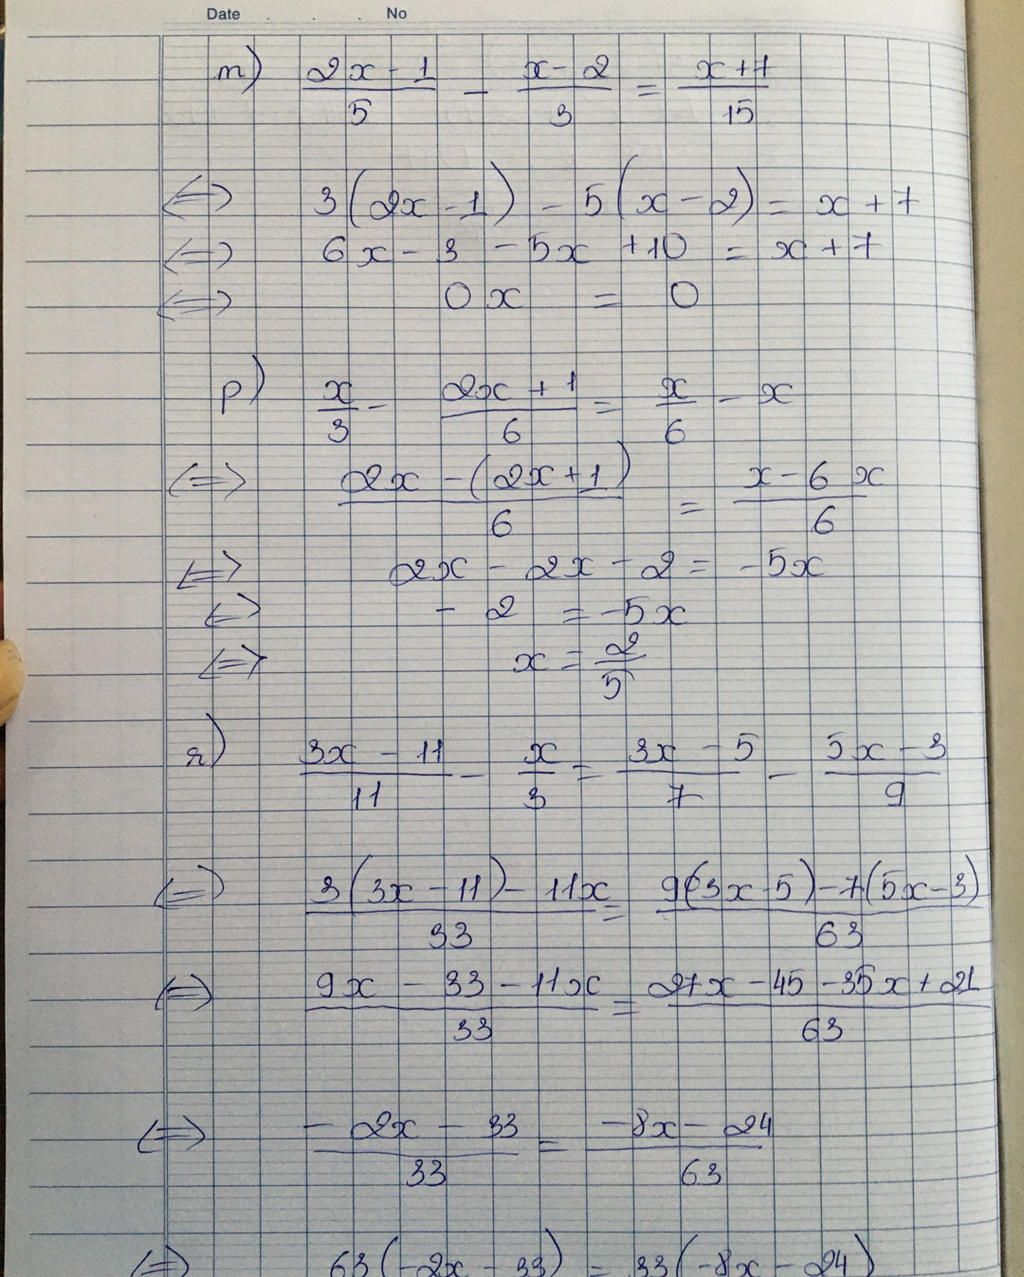 Date . . . No
n) (2x - 1)/5 - (x - 2)/3 = (x + 7)/15
<=> 3(2x - 1) - 5(x - 2) = x + 7
<=> 6x - 3 - 5x + 10 = x + 7
<=> 0x = 0
p) x/3 - (2x + 1)/6 = x/6 - x
<=> (2x - (2x + 1))/6 = (x - 6x)/6
<=> 2x - 2x - 2 = -5x
<=> - 2 = -5x
<=> x = 2/5
r) (3x - 11)/11 - x/3 = (3x - 5)/7 - (5x - 3)/9
<=> (3(3x - 11) - 11x)/33 = (9(3x - 5) - 7(5x - 3))/63
<=> (9x - 33 - 11x)/33 = (27x - 45 - 35x + 21)/63
<=> (- 2x - 33)/33 = (-8x - 24)/63
<=> 63(-2x - 33) = 33(-8x - 24)